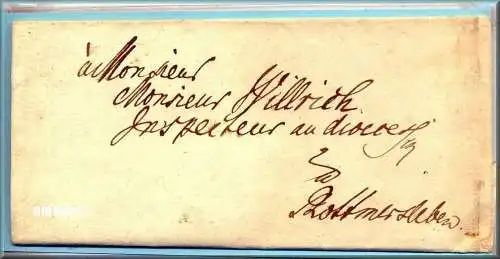 à Monsieur
Monsieur Willrich
Inspecteur au
à
Rottmersleben.